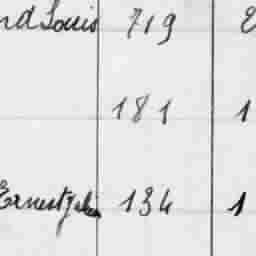 nd Louis 719
181 1
Ernest 134 1